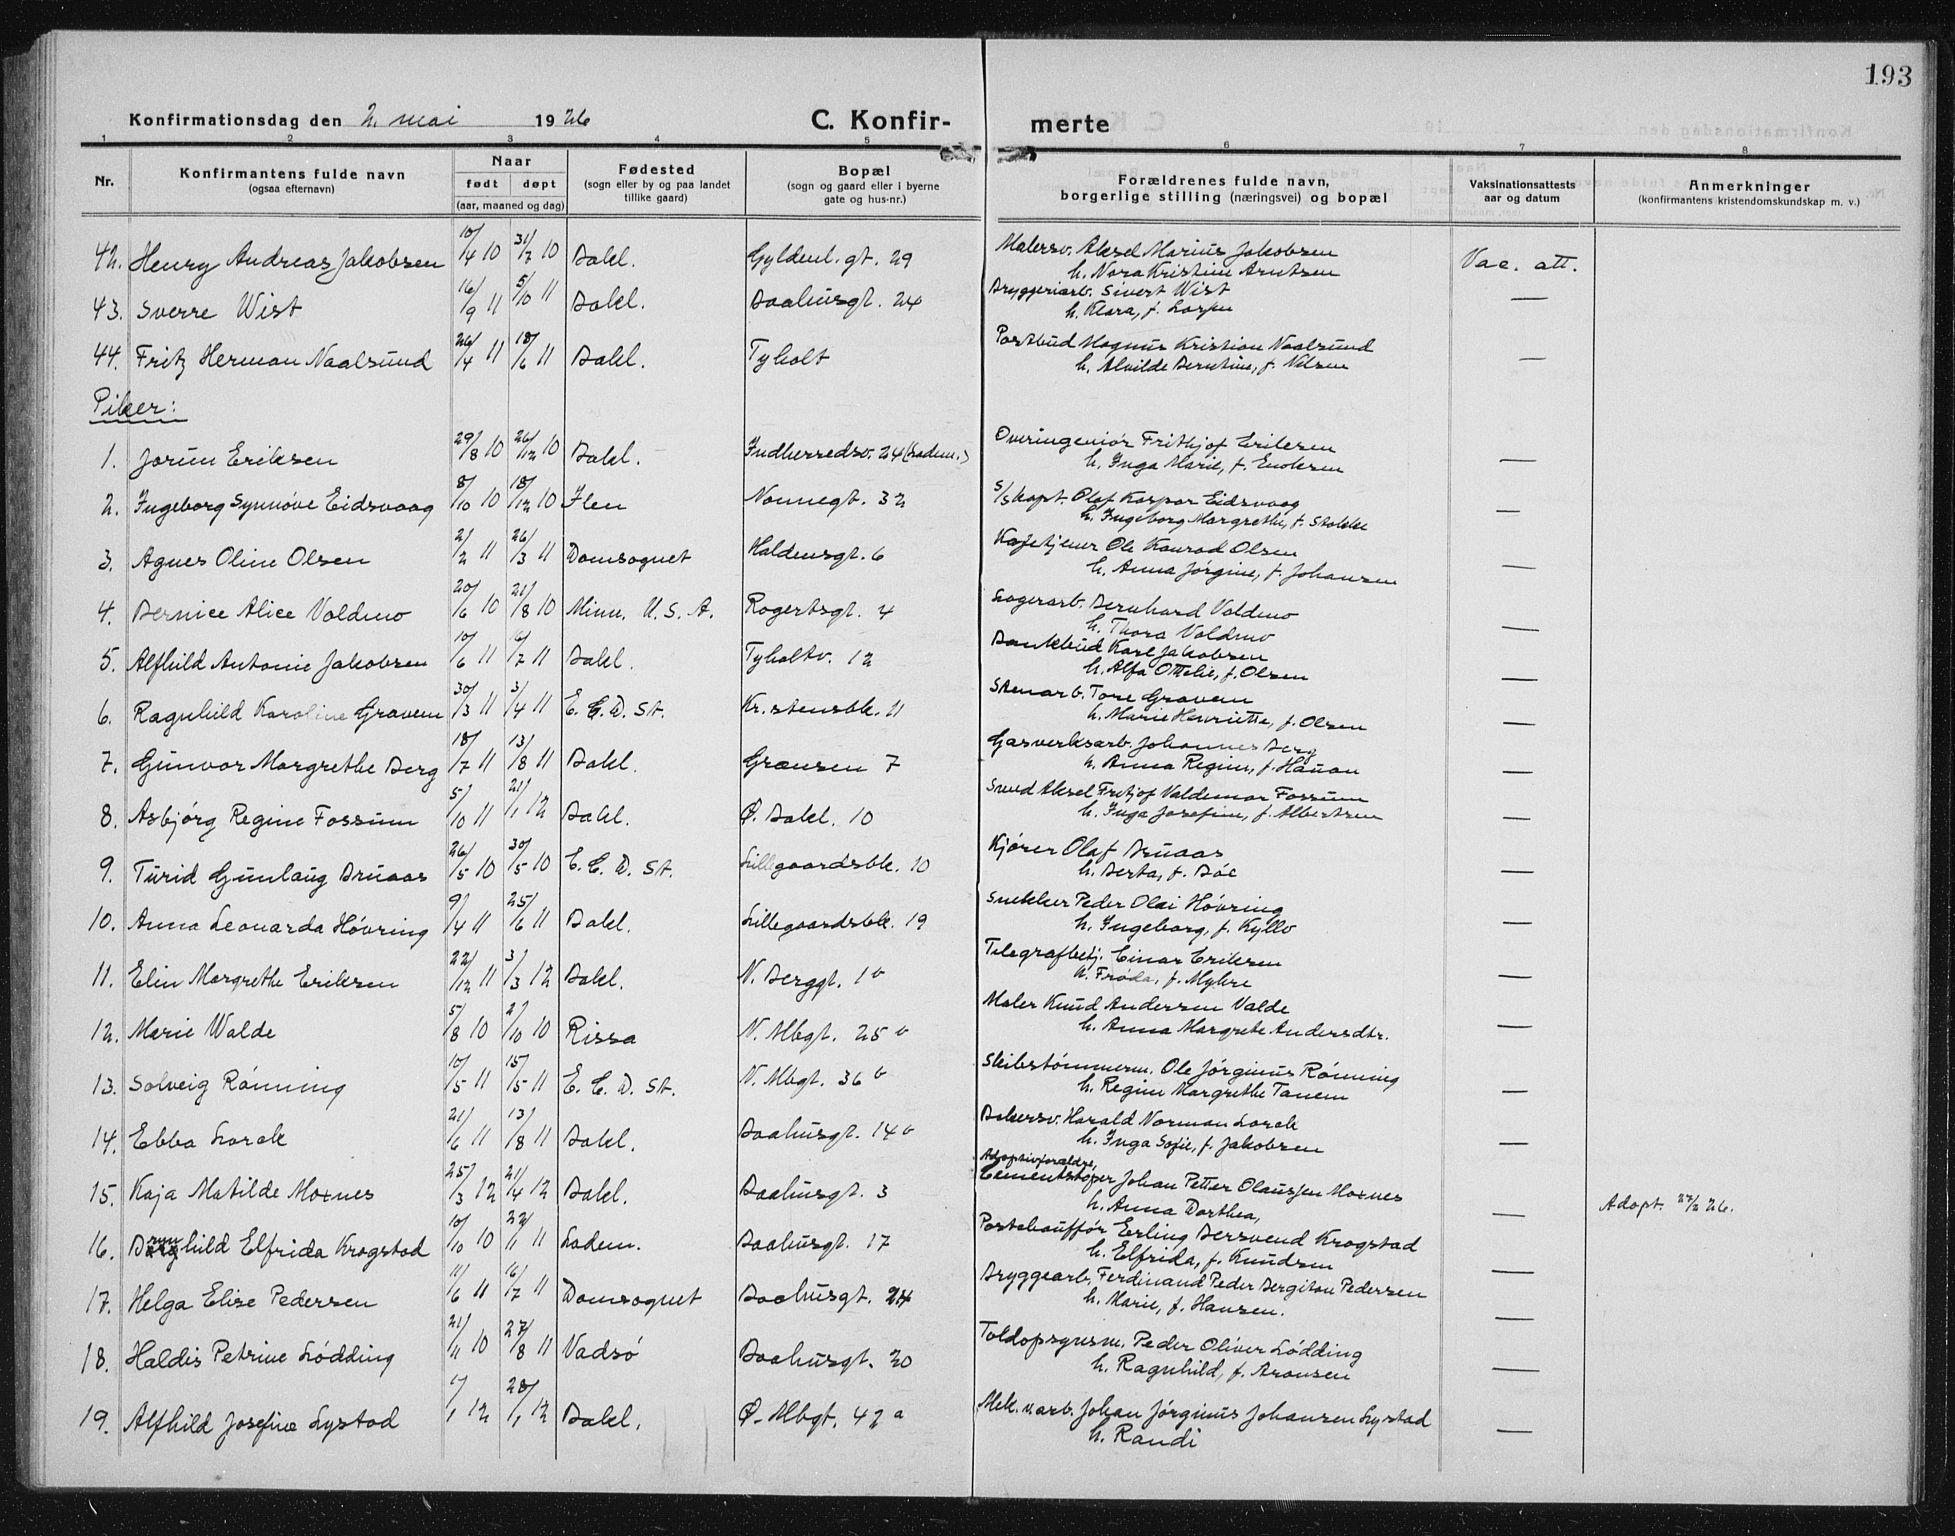 193
Konfirmationsdag den 2. mai 1926 C. Konfir- merte
1 2 3 4 5 6 7 8
Nr. Konfirmantens fulde navn (ogsaa efternavn) Naar født døpt (aar, maaned og dag) Fødested (sogn eller by og paa landet tillike gaard) Bopæl (sogn og gaard eller i byerne gate og hus-nr.) Forældrenes fulde navn, borgerlige stilling (næringsvei) og bopæl Vaksinationsattests aar og datum Anmerkninger (konfirmantens kristendomskundskap m. v.)
42. Henry Andreas Jakobsen 10/4 10 31/7 10 Bakl. Gyldenl. gt. 29 Malersv. Aksel Marius Jakobsen Vac. att.
h. Nora Kristine Arntsen
43. Sverre Wist 16/9 11 5/10 11 Bakl. Baahusgt. 24 Bryggeriarb. Sivert Wist —
h. Klara, f.
44. Fritz Herman Naalsund 26/4 11 18/6 11 Bakl. Tyholt Postbud Magnus Kristian Naalsund —
h. Alvilde Berntine, f. Nilsen
Piker:
1. Jorun Eriksen 29/8 10 26/12 10 Bakl. Indherredsv. 24 (Ladem.) Overingeniør Frithjof Eriksen
h. Inga Marie, f. Enoksen —
2. Ingeborg Synnøve Eidsvaag 8/10 10 18/12 10 Ilen Nonnegt. 32 S/S kapt. Olaf Kaspar Eidsvaag
h. Ingeborg Margrethe, f. Stokke —
3. Agnes Oline Olsen 2/2 11 26/3 11 Domsognet Haldensgt. 6 Kafetjener Ole Konrad Olsen
h. Anna Jørgine, f. Johansen —
4. Bernice Alice Voldmo 20/6 10 21/8 10 Minn. U. S. A. Rogertsgt. 4 Lagerarb. Bernhard Voldmo
h. Thora Voldmo —
5. Alfhild Antonie Jakobsen 10/6 11 6/7 11 Bakl. Tyholtv. 12 Bankbud Karl Jakobsen
h. Alfa Ottelie, f. Olsen —
6. Ragnhild Karoline Gravem 30/3 11 3/4 11 E. C. D. St. Kr. stensbk. 11 Stenarb. Tore Gravem
h. Marie Henriette, f. Olsen —
7. Gunvor Margrethe Berg 18/7 11 13/8 11 Bakl. Grænsen 7 Gasverksarb. Johannes Berg
h. Anna Regine, f. Hauan —
8. Asbjørg Regine Fossum 5/10 11 21/1 12 Bakl. Ø. Bakl. 10 Smed Aksel Fritjof Valdemar Fossum
h. Inga Josefine, f. Albertsen —
9. Turid Gunlaug Bruaas 26/5 10 30/5 10 E. C. D. St. Lillegaardsbk. 10 Kjører Olaf Bruaas
h. Berta, f. Bøe —
10. Anna Leonarda Høvring 9/4 11 25/6 11 Bakl. Lillegaardsbk. 19 Snekker Peder Olai Høvring
h. Ingeborg, f. Kyllo —
11. Elin Margrethe Eriksen 22/12 11 3/3 12 Bakl. N. Berggt. 1 b Telegrafbetj. Einar Eriksen
h. Frøda, f. Myhre —
12. Marie Walde 5/8 10 2/10 10 Rissa N. Mbgt. 25 b Maler Knud Andersen Valde
h. Anna Margrete Andersdtr. —
13. Solveig Rønning 10/5 11 15/5 11 E. C. D. St. N. Mbgt. 36 b Skibstømmerm. Ole Jørginus Rønning
h. Regine Margrethe Tanem —
14. Ebba Lorck 21/6 11 13/8 11 Bakl. Baahusgt. 14 b Bakersv. Harald Norman Lorck
h. Inga Sofie, f. Jakobsen —
Adoptivforældre,
15. Kaja Matilde Moxnes 25/3 12 21/4 12 Bakl. Baahusgt. 3 Cementstøper Johan Petter Olaussen Moxnes
h. Anna Dorthea, — Adopt. 27/2 26.
16. Brynhild Elfrida Krogstad 10/10 10 22/1 11 Ladem. Baahusgt. 17 Postchauffør Erling Bersvend Krogstad
h. Elfrida, f. Knudsen —
17. Helga Elise Pedersen 11/6 11 16/7 11 Domsognet Baahusgt. 24 Bryggearb. Ferdinand Peder Bergiton Pedersen
h. Marie, f. Hansen. —
18. Haldis Petrine Lødding 21/11 10 27/8 11 Vadsø Baahusgt. 20 Toldopsynsm. Peder Oliver Lødding
h. Ragnhild, f. Aronsen —
19. Alfhild Josefine Lystad 1/1 12 28/1 12 Bakl. Ø. Mbgt. 42 a Mek. v. arb. Johan Jørginus Johansen Lystad
h. Randi —